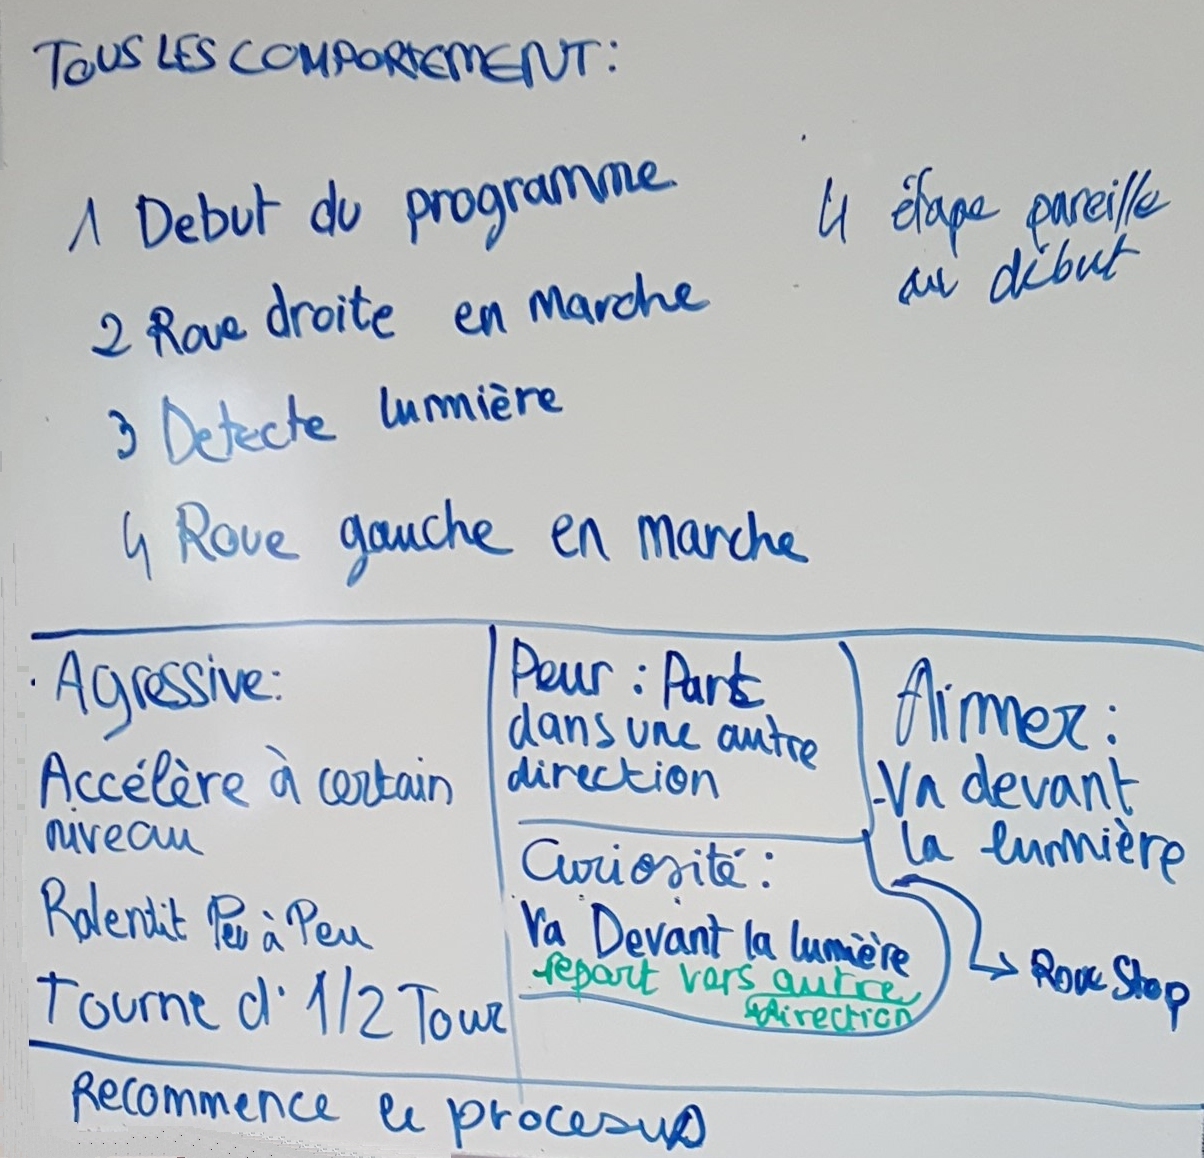 TOUS LES COMPORTEMENT:
1 Debut du programme
2 Roue droite en Marche
3 Detecte lumière
4 Roue gauche en marche
4 étape pareille
au début
Agressive:
Accélère à certain
niveau
Ralentit Peu à Peu
Tourne d' 1/2 Tour
Peur : Part
dans une autre
direction
Curiosité :
Va Devant la lumière
repart vers autre
direction
Aimer :
-Va devant
la lumière
→ Roue Stop
Recommence le procesus